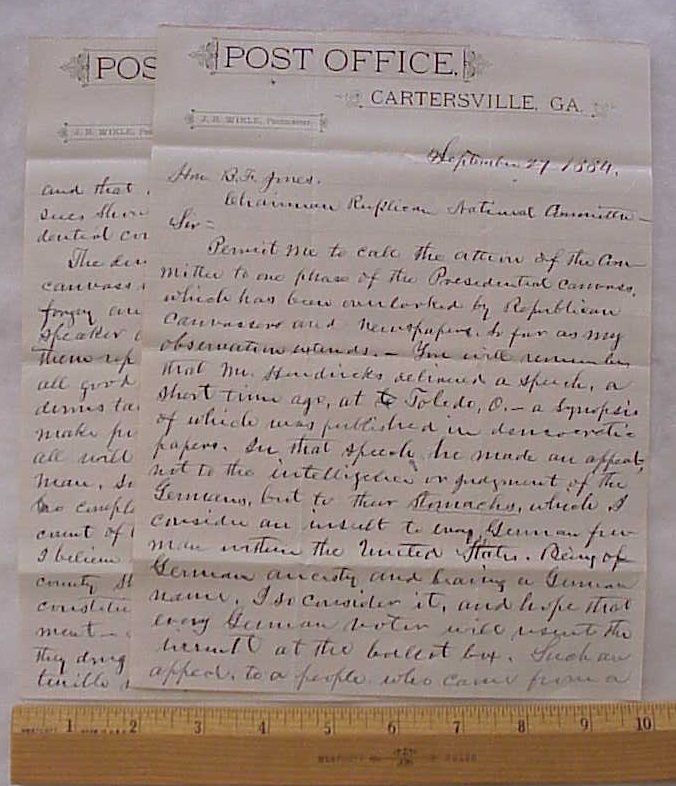 POS
J. R. WIKLE, Pos
and that
sues shou
dential co
The
canvass
forgery an
speaker
them rep
all good
dems ta
make pu
all will
man. In
so comple
count of
I believe
county sh
constitu
ment —
they drug
tirville
POST OFFICE.
CARTERSVILLE, GA.
J. R. WIKLE, Postmaster.
September 27 1884.
Hon B. F. Jones.
Chairman Republican National Committee —
Sir =
Permit me to call the attention of the Com
mittee to one phase of the Presidential canvass,
which has been overlooked by Republican
canvassers and newspapers, so far as my
observation extends. — You will remember
that Mr. Hendricks delivered a speech, a
short time ago, at Toledo, O. — a synopsis
of which was published in democratic
papers. In that speech he made an appeal,
not to the intelligence or judgment of the
Germans, but to their stomachs, which I
consider an insult to every German free
man within the United States. Being of
German ancestry and bearing a German
name, I so consider it, and hope that
every German voter will resent the
insult at the ballot box. Such an
appeal, to a people who came from a
1 2 3 4 5 6 7 8 9 10